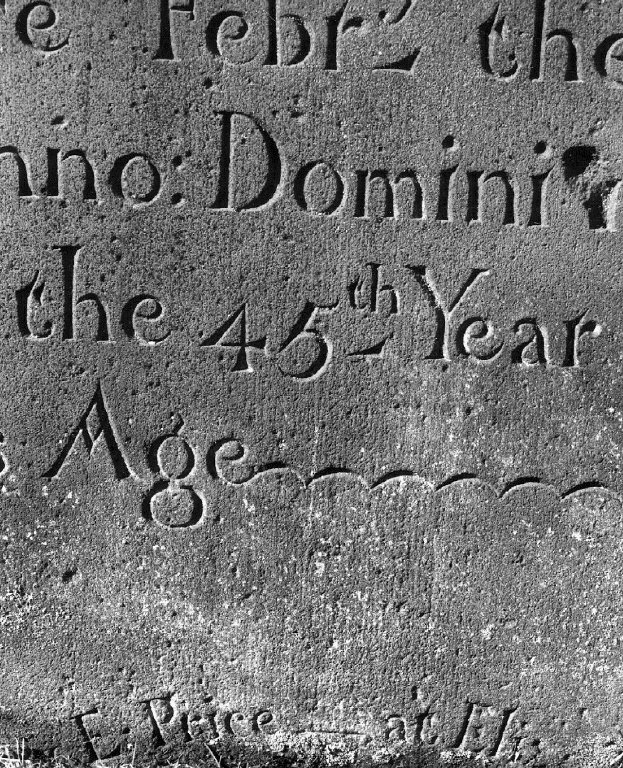 e Febr: the
nno: Domini
the 45th Year
s Age
E. Price at Eli: